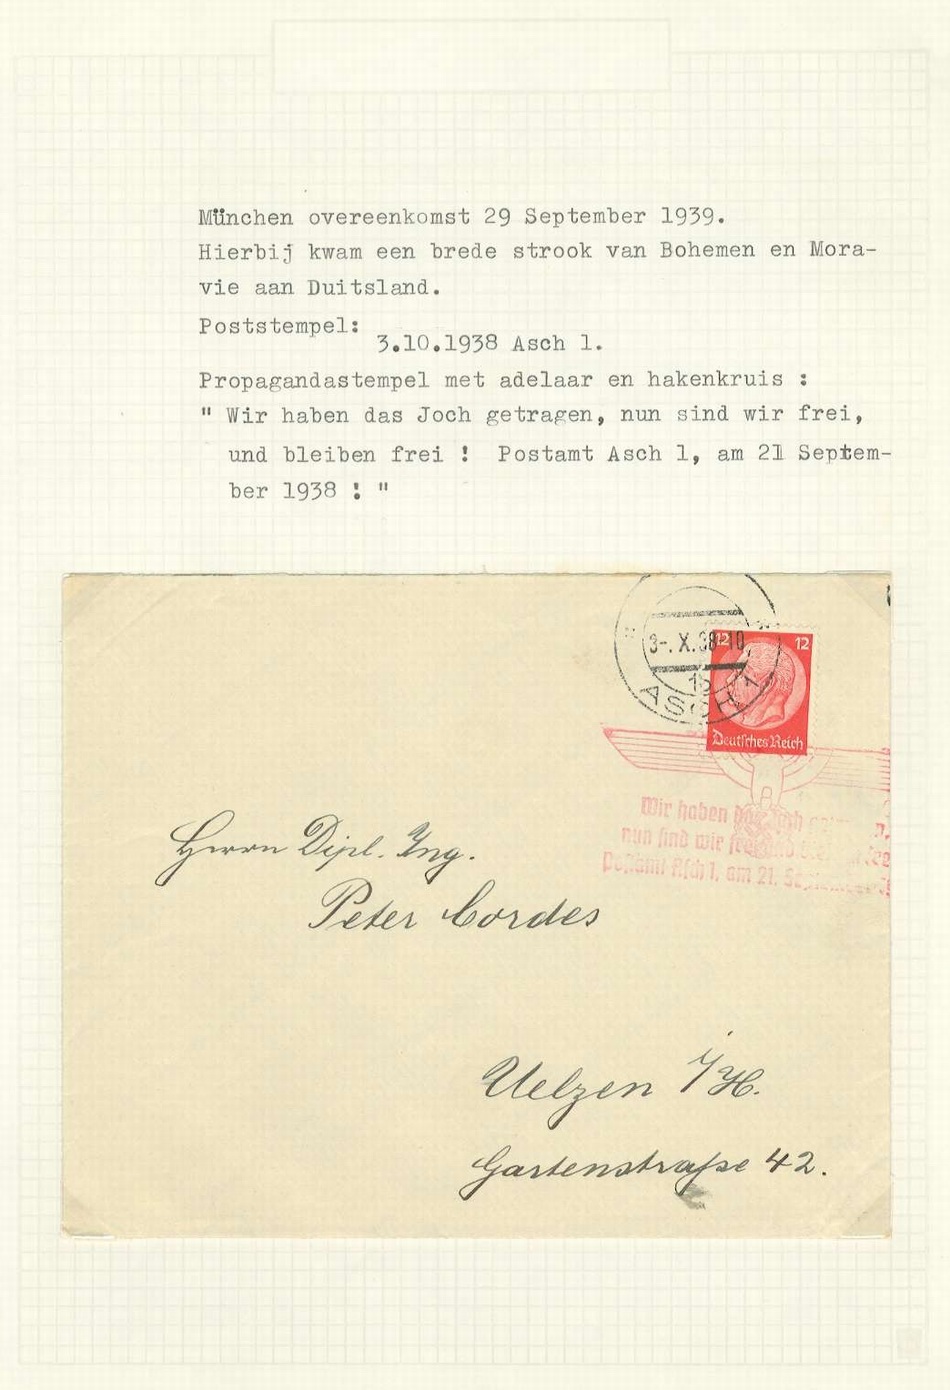 München overeenkomst 29 September 1939.
Hierbij kwam een brede strook van Bohemen en Mora-
vie aan Duitsland.
Poststempel:
3.10.1938 Asch 1.
Propagandastempel met adelaar en hakenkruis :
" Wir haben das Joch getragen, nun sind wir frei,
und bleiben frei ! Postamt Asch 1, am 21 Septem-
ber 1938 ! "
3-. X. 38-18
1b
ASCH 1
12 12
Deutsches Reich
Wir haben das Joch
nun sind wir frei
Postamt Asch 1, am 21.
Herrn Dipl. Ing.
Peter Cordes
Uelzen i/H.
Gartenstraße 42.